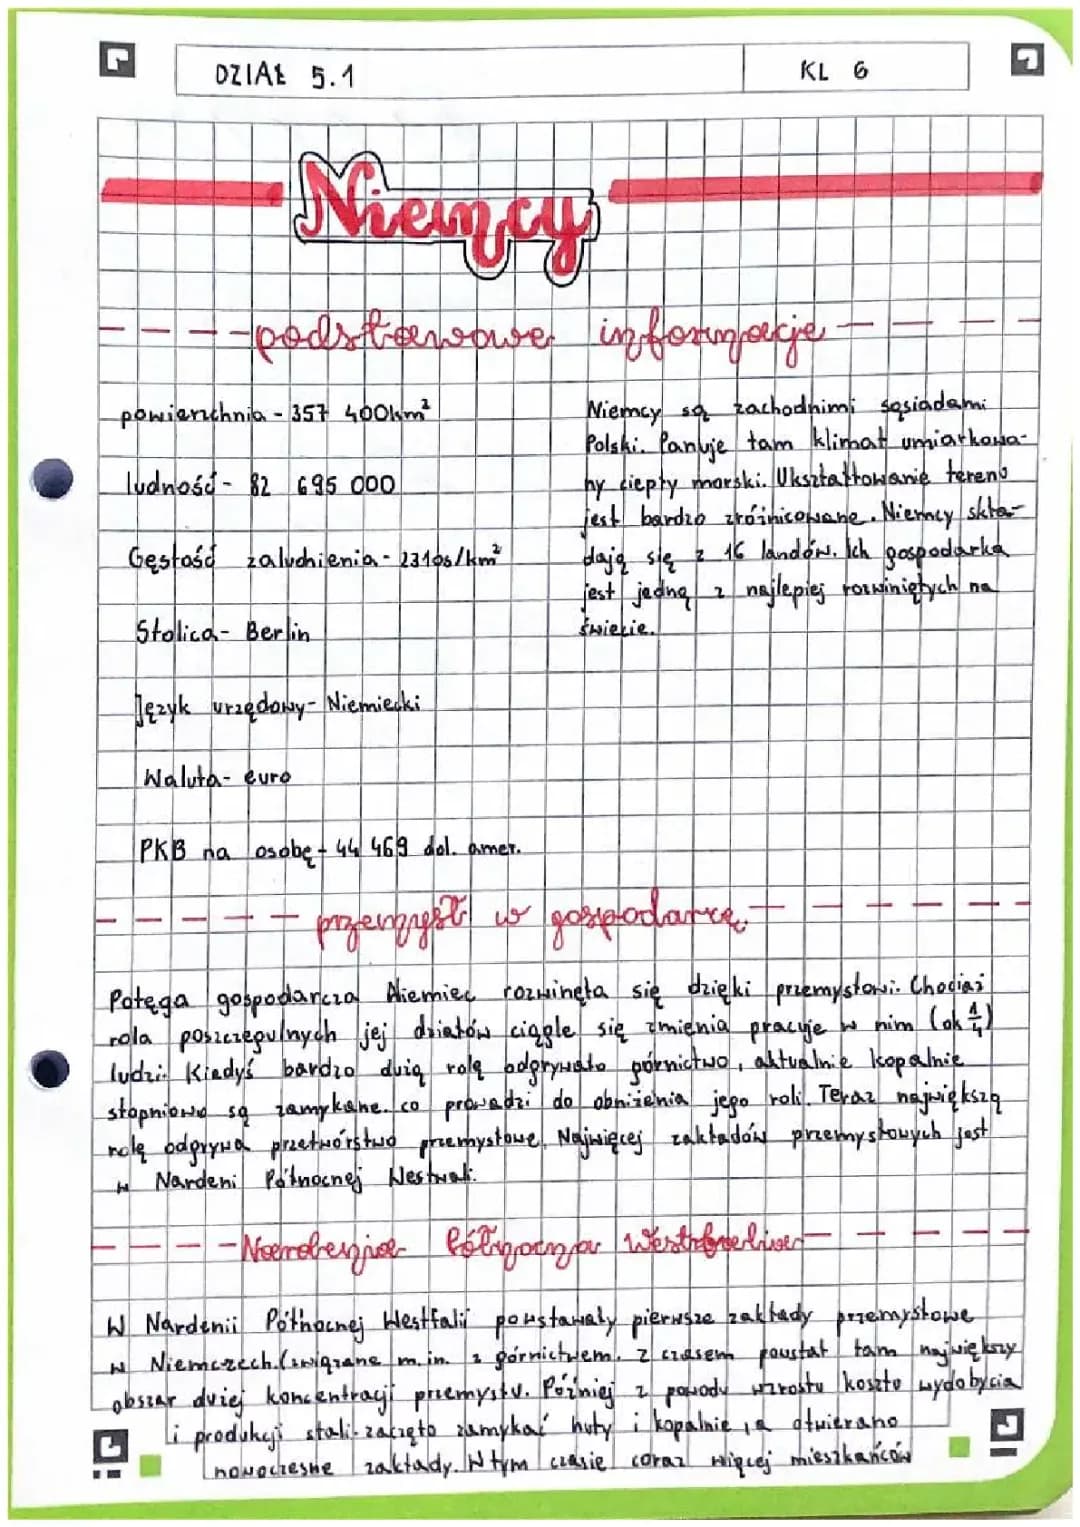 DZIAŁ 5.1
KL 6
Niemcy
podstawowe informacje
powierzchnia - 357 400km²
ludność - 82 695 000
Gęstość zaludnienia - 231os/km²
Stolica - Berlin
Język urzędowy - Niemiecki
Waluta - euro
PKB na osobę - 44 469 dol. amer.
Niemcy są zachodnimi sąsiadami
Polski. Panuje tam klimat umiarkowa-
ny ciepły morski. Ukształtowanie terenu
jest bardzo zróżnicowane. Niemcy skła-
dają się z 16 landów. Ich gospodarka
jest jedną z najlepiej rozwiniętych na
świecie.
przemysł w gospodarce
Potęga gospodarcza Niemiec rozwinęła się dzięki przemysłowi. Chociaż
rola poszczegulnych jej działów ciągle się zmienia pracuje w nim (ok 1/4)
ludzi. Kiedyś bardzo dużą rolę odgrywało górnictwo, aktualnie kopalnie
stopniowo są zamykane. co prowadzi do obniżenia jego roli. Teraz największą
rolę odgrywa przetwórstwo przemysłowe. Najwięcej zakładów przemysłowych jest
w Nardeni Północnej Westwali.
Nardenia Północna Westfalia
W Nardenii Północnej Westfalii powstawały pierwsze zakłady przemysłowe
w Niemczech.(związane m.in. z górnictwem. z czasem powstał tam największy
obszar dużej koncentracji przemysłu. Później z powodu wzrostu koszto wydobycia
i produkcji stali zaczęto zamykać huty i kopalnie, a otwierano
nowoczesne zakłady. W tym czasie coraz więcej mieszkańców